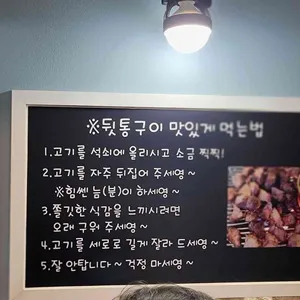 ※뒷통구이 맛있게 먹는법
1.고기를 석쇠에 올리시고 소금 찍찍!
2.고기를 자주 뒤집어 주세영~
※힘쎈 늠(분)이 하세영~
3.쫄깃한 식감을 느끼시려면
오래 구워 주세영~
4.고기를 세로로 길게 잘라 드세영~
5.잘 안탑니다~ 걱정 마세영~